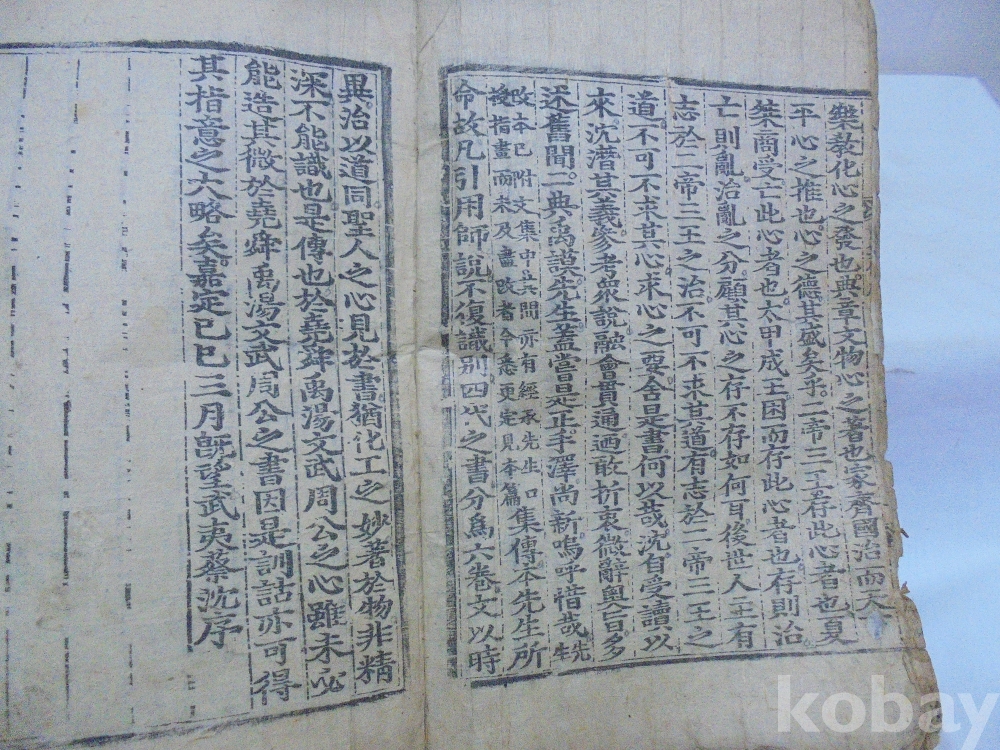 樂敎化心之發也典章文物心之著也家齊國治而天
平心之推也心之德其盛矣乎二帝三王存此心者也夏
桀商受亡此心者也太甲成王困而存此心者也存則治
亡則亂治亂之分顧其心之存不存如何耳後世人主有
志於二帝三王之治不可不求其道有志於二帝三王之
道不可不求其心求心之要舍是書何以哉沈自受讀以
來沈潛其義參考衆說融會貫通廼敢折衷微辭奧旨多
述舊聞二典禹謨先生蓋嘗是正手澤尚新嗚呼惜哉先生
改本已附文集中其間亦有經承先生口
授指畫而未及盡改者今悉更定見本篇
集傳本先生所
命故凡引用師說不復識別四代之書分爲六卷文以時
異治以道同聖人之心見於書猶化工之妙著於物非精
深不能識也是傳也於堯舜禹湯文武周公之心雖未必
能造其微於堯舜禹湯文武周公之書因是訓詁亦可得
其指意之大略矣嘉定己巳三月旣望武夷蔡沈序
kobay